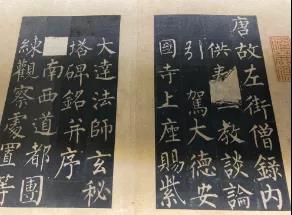 唐故左街僧錄內
供 教談論
引 駕大德安
國寺上座賜紫
大達法師玄秘
塔碑銘并序
南西道都團
練觀察處置等